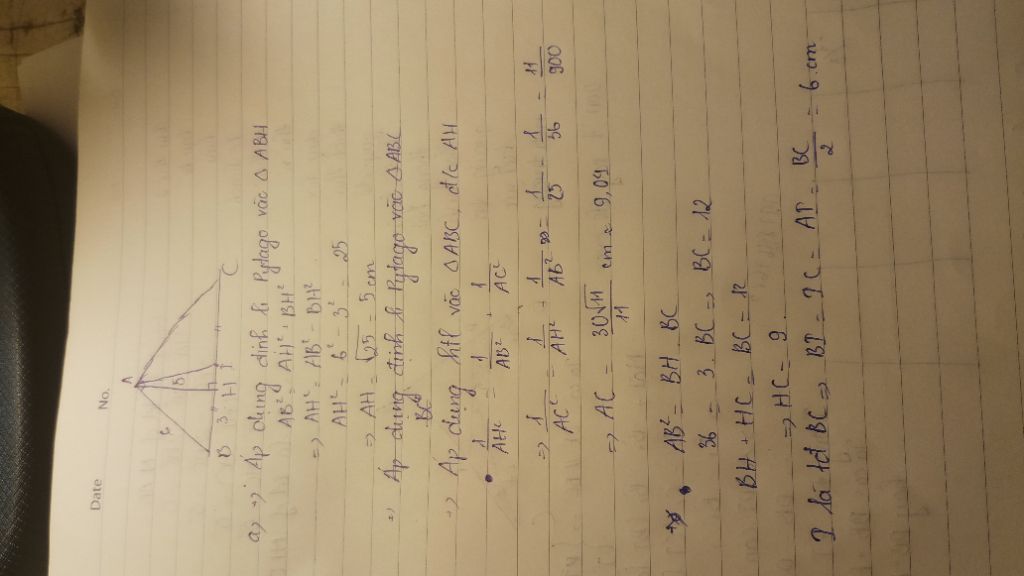 Date
No.
A
6
5
B 3 H I C
a) => Áp dụng định lí Pytago vào Δ ABH
AB² = AH² + BH²
=> AH² = AB² - BH²
AH² = 6² - 3² = 25
=> AH = √25 = 5 cm
=> Áp dụng định lí Pytago vào Δ ABC
BC
=> Áp dụng htl vào Δ ABC, đ/c AH
• 1/AH² = 1/AB² + 1/AC²
=> 1/AC² = 1/AH² - 1/AB² = 1/25 - 1/36 = 11/900
=> AC = 30√11/11 cm ≈ 9,09
• AB² = BH . BC
36 = 3 . BC => BC = 12
BH + HC = BC = 12
=> HC = 9
I là tđ BC => BI = IC = AI = BC/2 = 6 cm